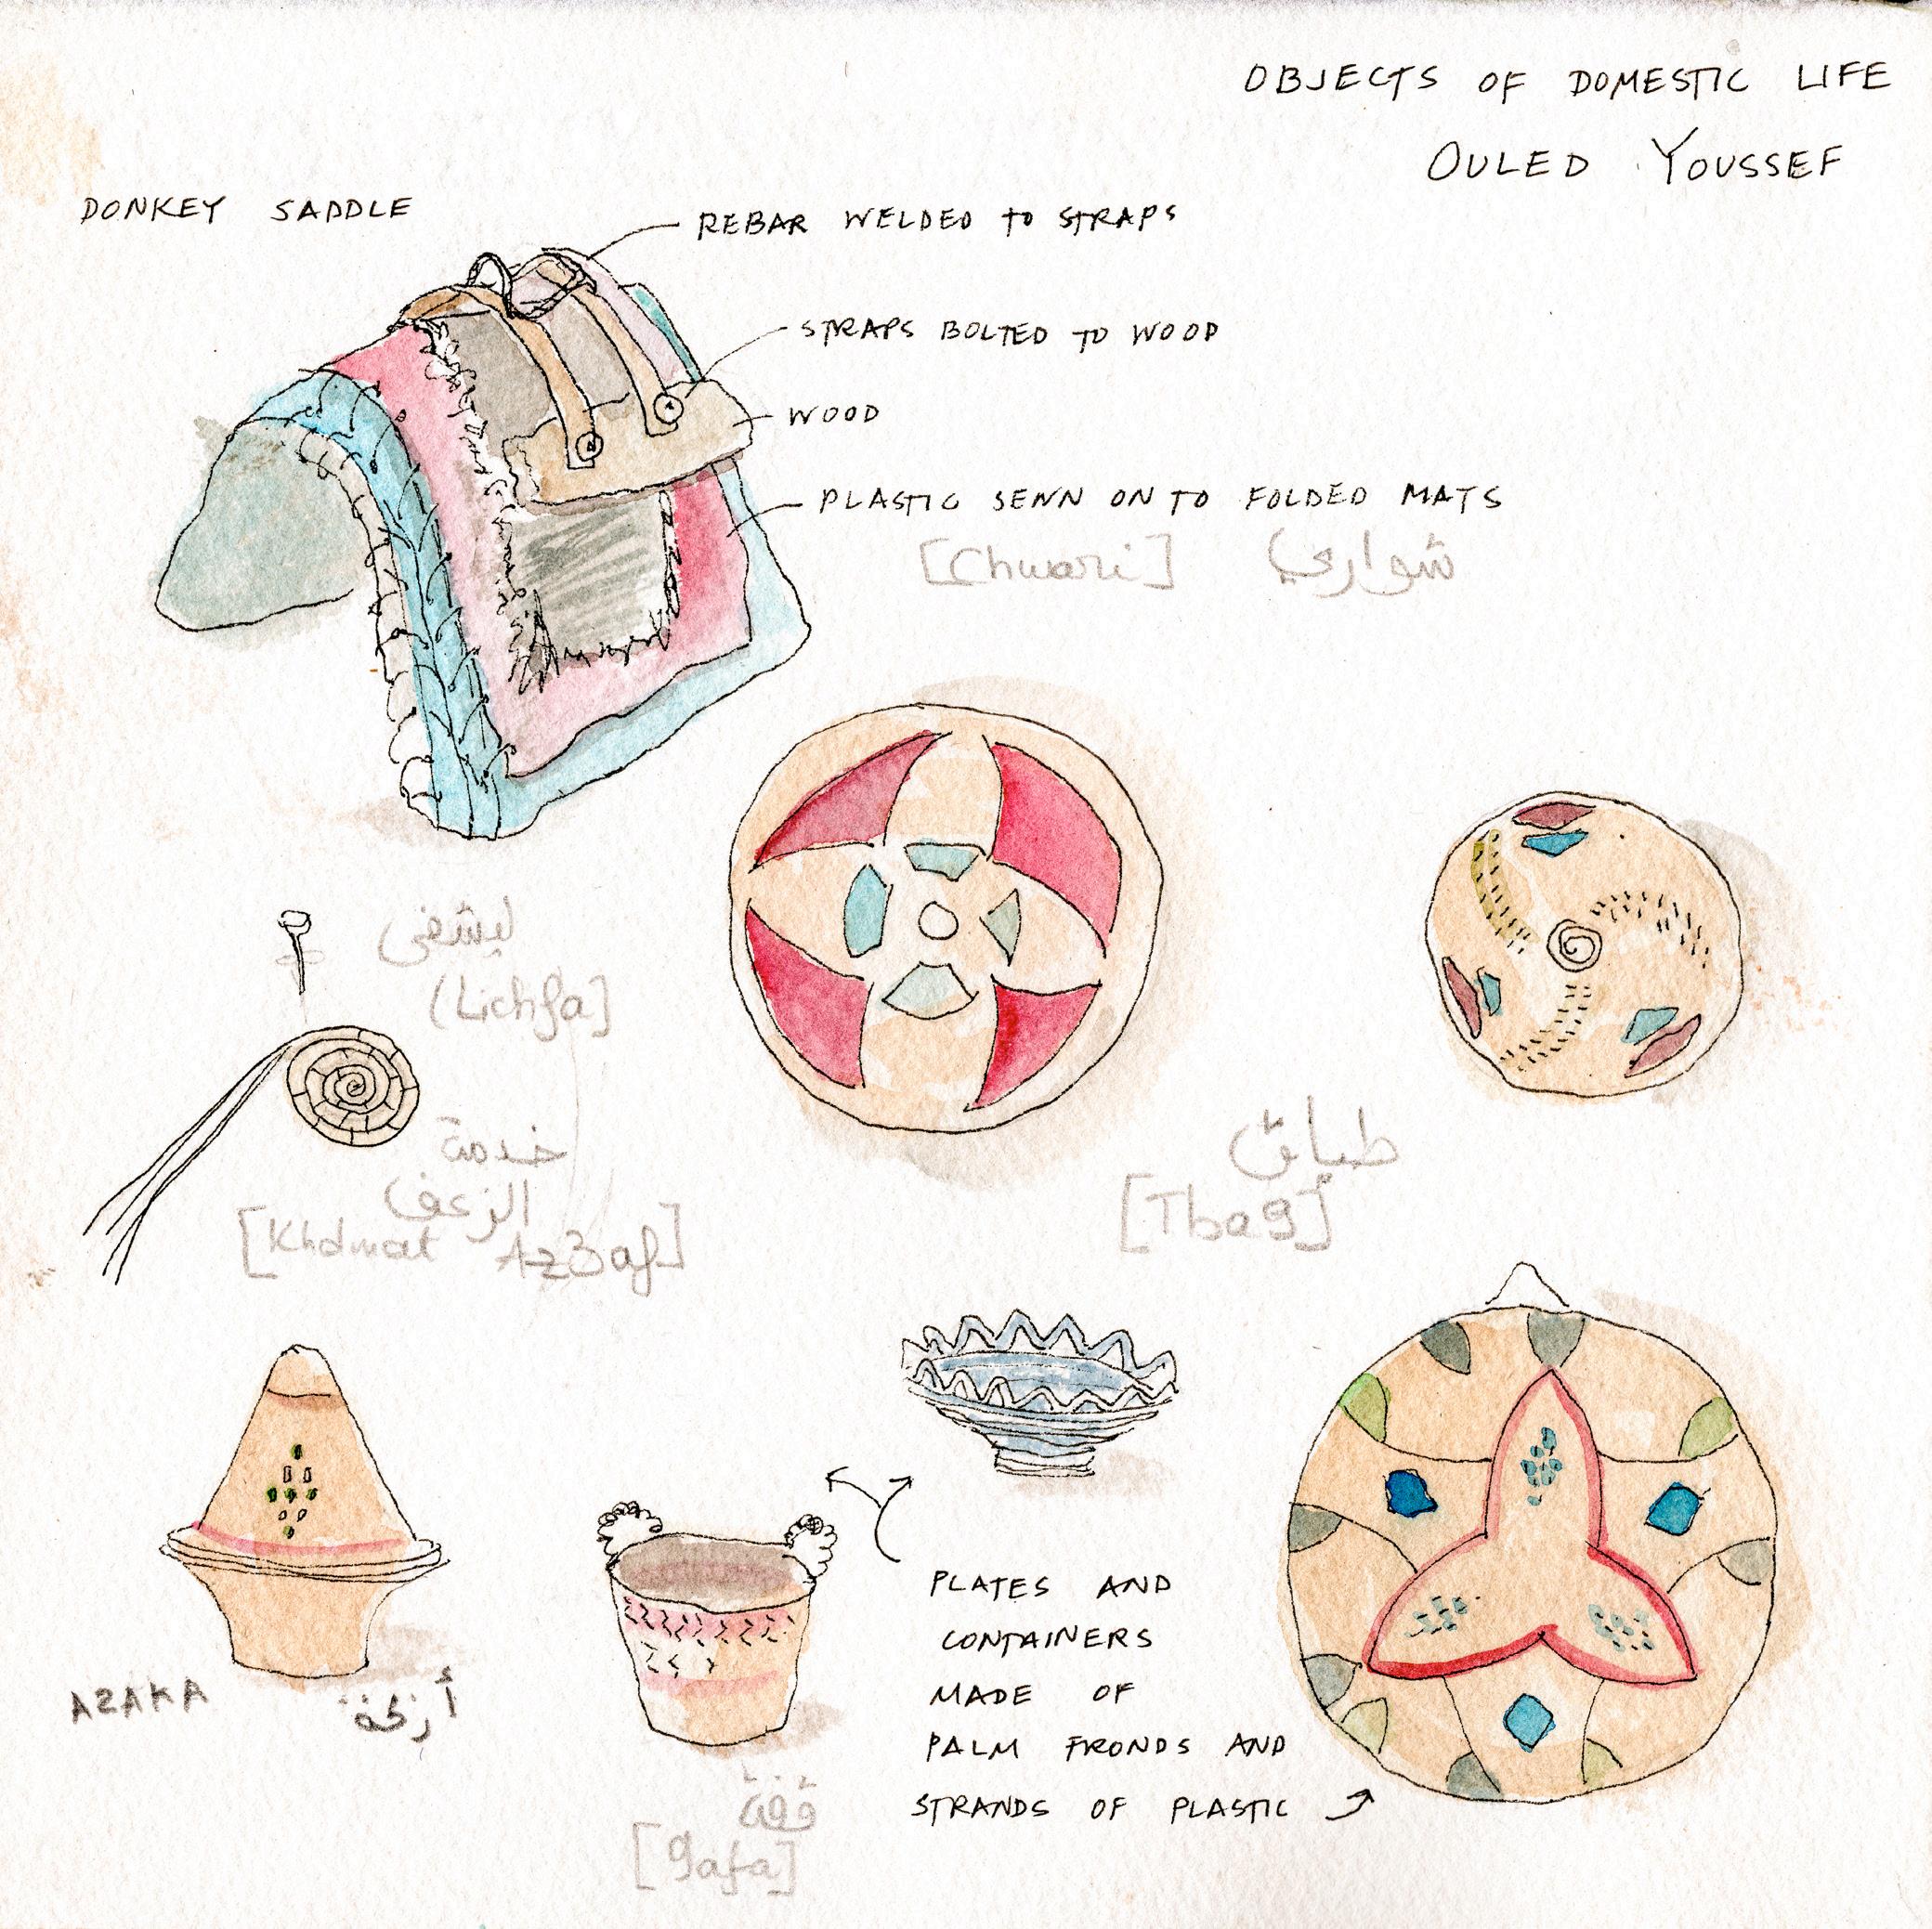 OBJECTS OF DOMESTIC LIFE
OULED YOUSSEF
DONKEY SADDLE
REBAR WELDED TO STRAPS
STRAPS BOLTED TO WOOD
WOOD
PLASTIC SEWN ON TO FOLDED MATS
[Chwari] شواري
ليشفى
(Lichfa]
خدمة
الزعف
[Khdmat Az3af]
طباق
[Tbag]
AZAKA
أزكة
قفة
[9afa]
PLATES AND
CONTAINERS
MADE OF
PALM FRONDS AND
STRANDS OF PLASTIC